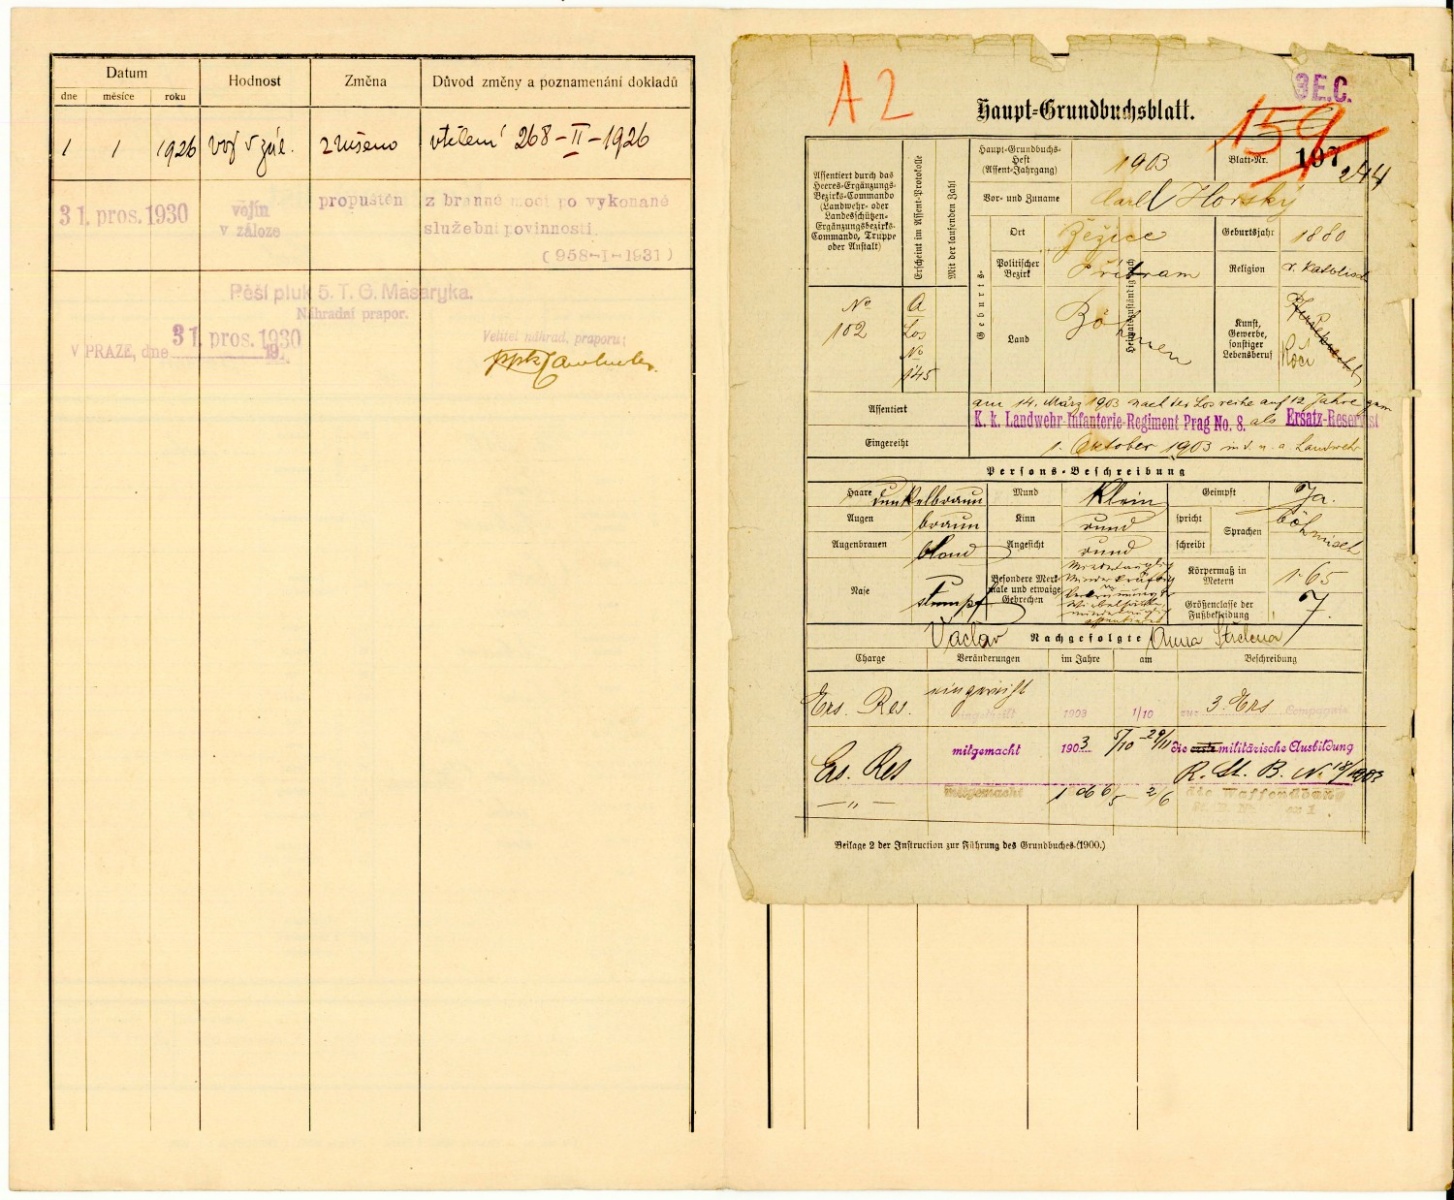 Datum
Hodnost
Změna
Důvod změny a poznamenání dokladů
dne měsíce roku
1 1 1926 voj v zál. zrušeno vtělení 268-II-1926
31. pros. 1930 vojín propuštěn z branné moci po vykonané
v záloze služební povinnosti.
(958-I-1931)
Pěší pluk 5. T. G. Masaryka.
Náhradní prapor.
V PRAZE, dne 31. pros. 1930
19
Velitel náhrad. praporu:
A2
3E.C.
Haupt-Grundbuchsblatt.
159
Assentiert durch das
Heeres-Ergänzungs-
Bezirks-Commando
(Landwehr- oder
Landesschützen-
Ergänzungsbezirks-
Commando, Truppe
oder Anstalt)
Erscheint im Assent-Protokolle
Mit der laufenden Zahl
Haupt-Grundbuchs-
Heft
(Assent-Jahrgang)
1903
Blatt-Nr.
197
244
Vor- und Zuname
Carl Horský
Geburts-
Ort
Geburtsjahr
1880
Politischer
Bezirk
Příbram
Religion
r. katholisch
Heimatszuständigkeit
Land
Böhmen
Kunst,
Gewerbe,
sonstiger
Lebensberuf
No
102
A
Los
No
145
Assentiert
am 14. März 1903 nach der Losreihe auf 12 Jahre zum
K. k. Landwehr-Infanterie-Regiment Prag No. 8. als Ersatz-Reservist
Eingereiht
1. Oktober 1903 in d. n. a. Landwehr
Persons-Beschreibung
Haare dunkelbraun
Mund klein
Geimpft Ja.
Augen braun
Kinn rund
spricht
Sprachen
böhmisch
Augenbrauen blond
Angesicht rund
schreibt
Nase stumpf
Besondere Merk-
male und etwaige
Gebrechen
Körpermaß in
Metern
1·65
Größenclasse der
Fußbekleidung
7.
Václav Nachgefolgte Anna
Charge Veränderungen im Jahre am Beschreibung
Ers. Res. eingereiht 1903 1/10 zur 3. Ers Compagnie
Ers. Res mitgemacht 1903 5/10 29/11 die erste militärische Ausbildung
R. St. B. No 18/1903
– " – mitgemacht 1906 5 – 2/6 die Waffenübung
Beilage 2 der Instruction zur Führung des Grundbuches (1900.)